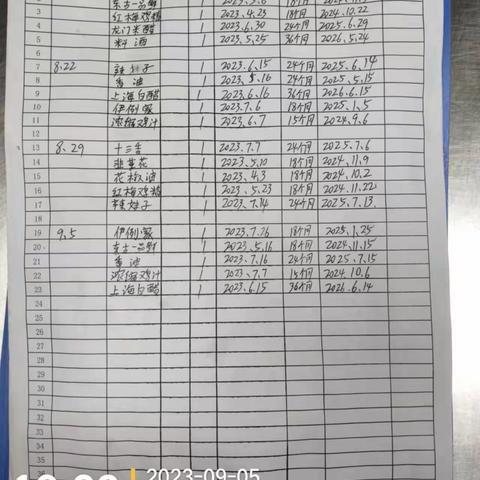 东古一品鲜 1 2023.5.6 18个月
4 红梅鸡精 1 2023.4.23 18个月 2024.10.22
5 龙门米醋 1 2023.6.30 24个月 2025.6.29
6 料酒 1 2023.5.25 36个月 2026.5.24
7 8.22 辣妹子 1 2023.6.15 24个月 2025.6.14
8 香油 1 2023.5.16 24个月 2025.5.15
9 上海白醋 1 2023.6.16 36个月 2026.6.15
10 伊例家 1 2023.7.6 18个月 2025.1.5
11 浓缩鸡汁 1 2023.6.7 15个月 2024.9.6
12
13 8.29 十三香 1 2023.7.7 24个月 2025.7.6
14 韭菜花 1 2023.5.10 18个月 2024.11.9
15 花椒油 1 2023.4.3 18个月 2024.10.2
16 红梅鸡精 1 2023.5.23 18个月 2024.11.22
17 辣妹子 1 2023.7.14 24个月 2025.7.13
18
19 9.5 伊例家 1 2023.7.26 18个月 2025.1.25
20 东古一品鲜 1 2023.5.16 18个月 2024.11.15
21 香油 1 2023.7.16 24个月 2025.7.15
22 浓缩鸡汁 1 2023.7.7 15个月 2024.10.6
23 上海白醋 1 2023.6.15 36个月 2026.6.14
24
25
26
27
28
29
30
31
32
33
34
35
36
2023-09-05